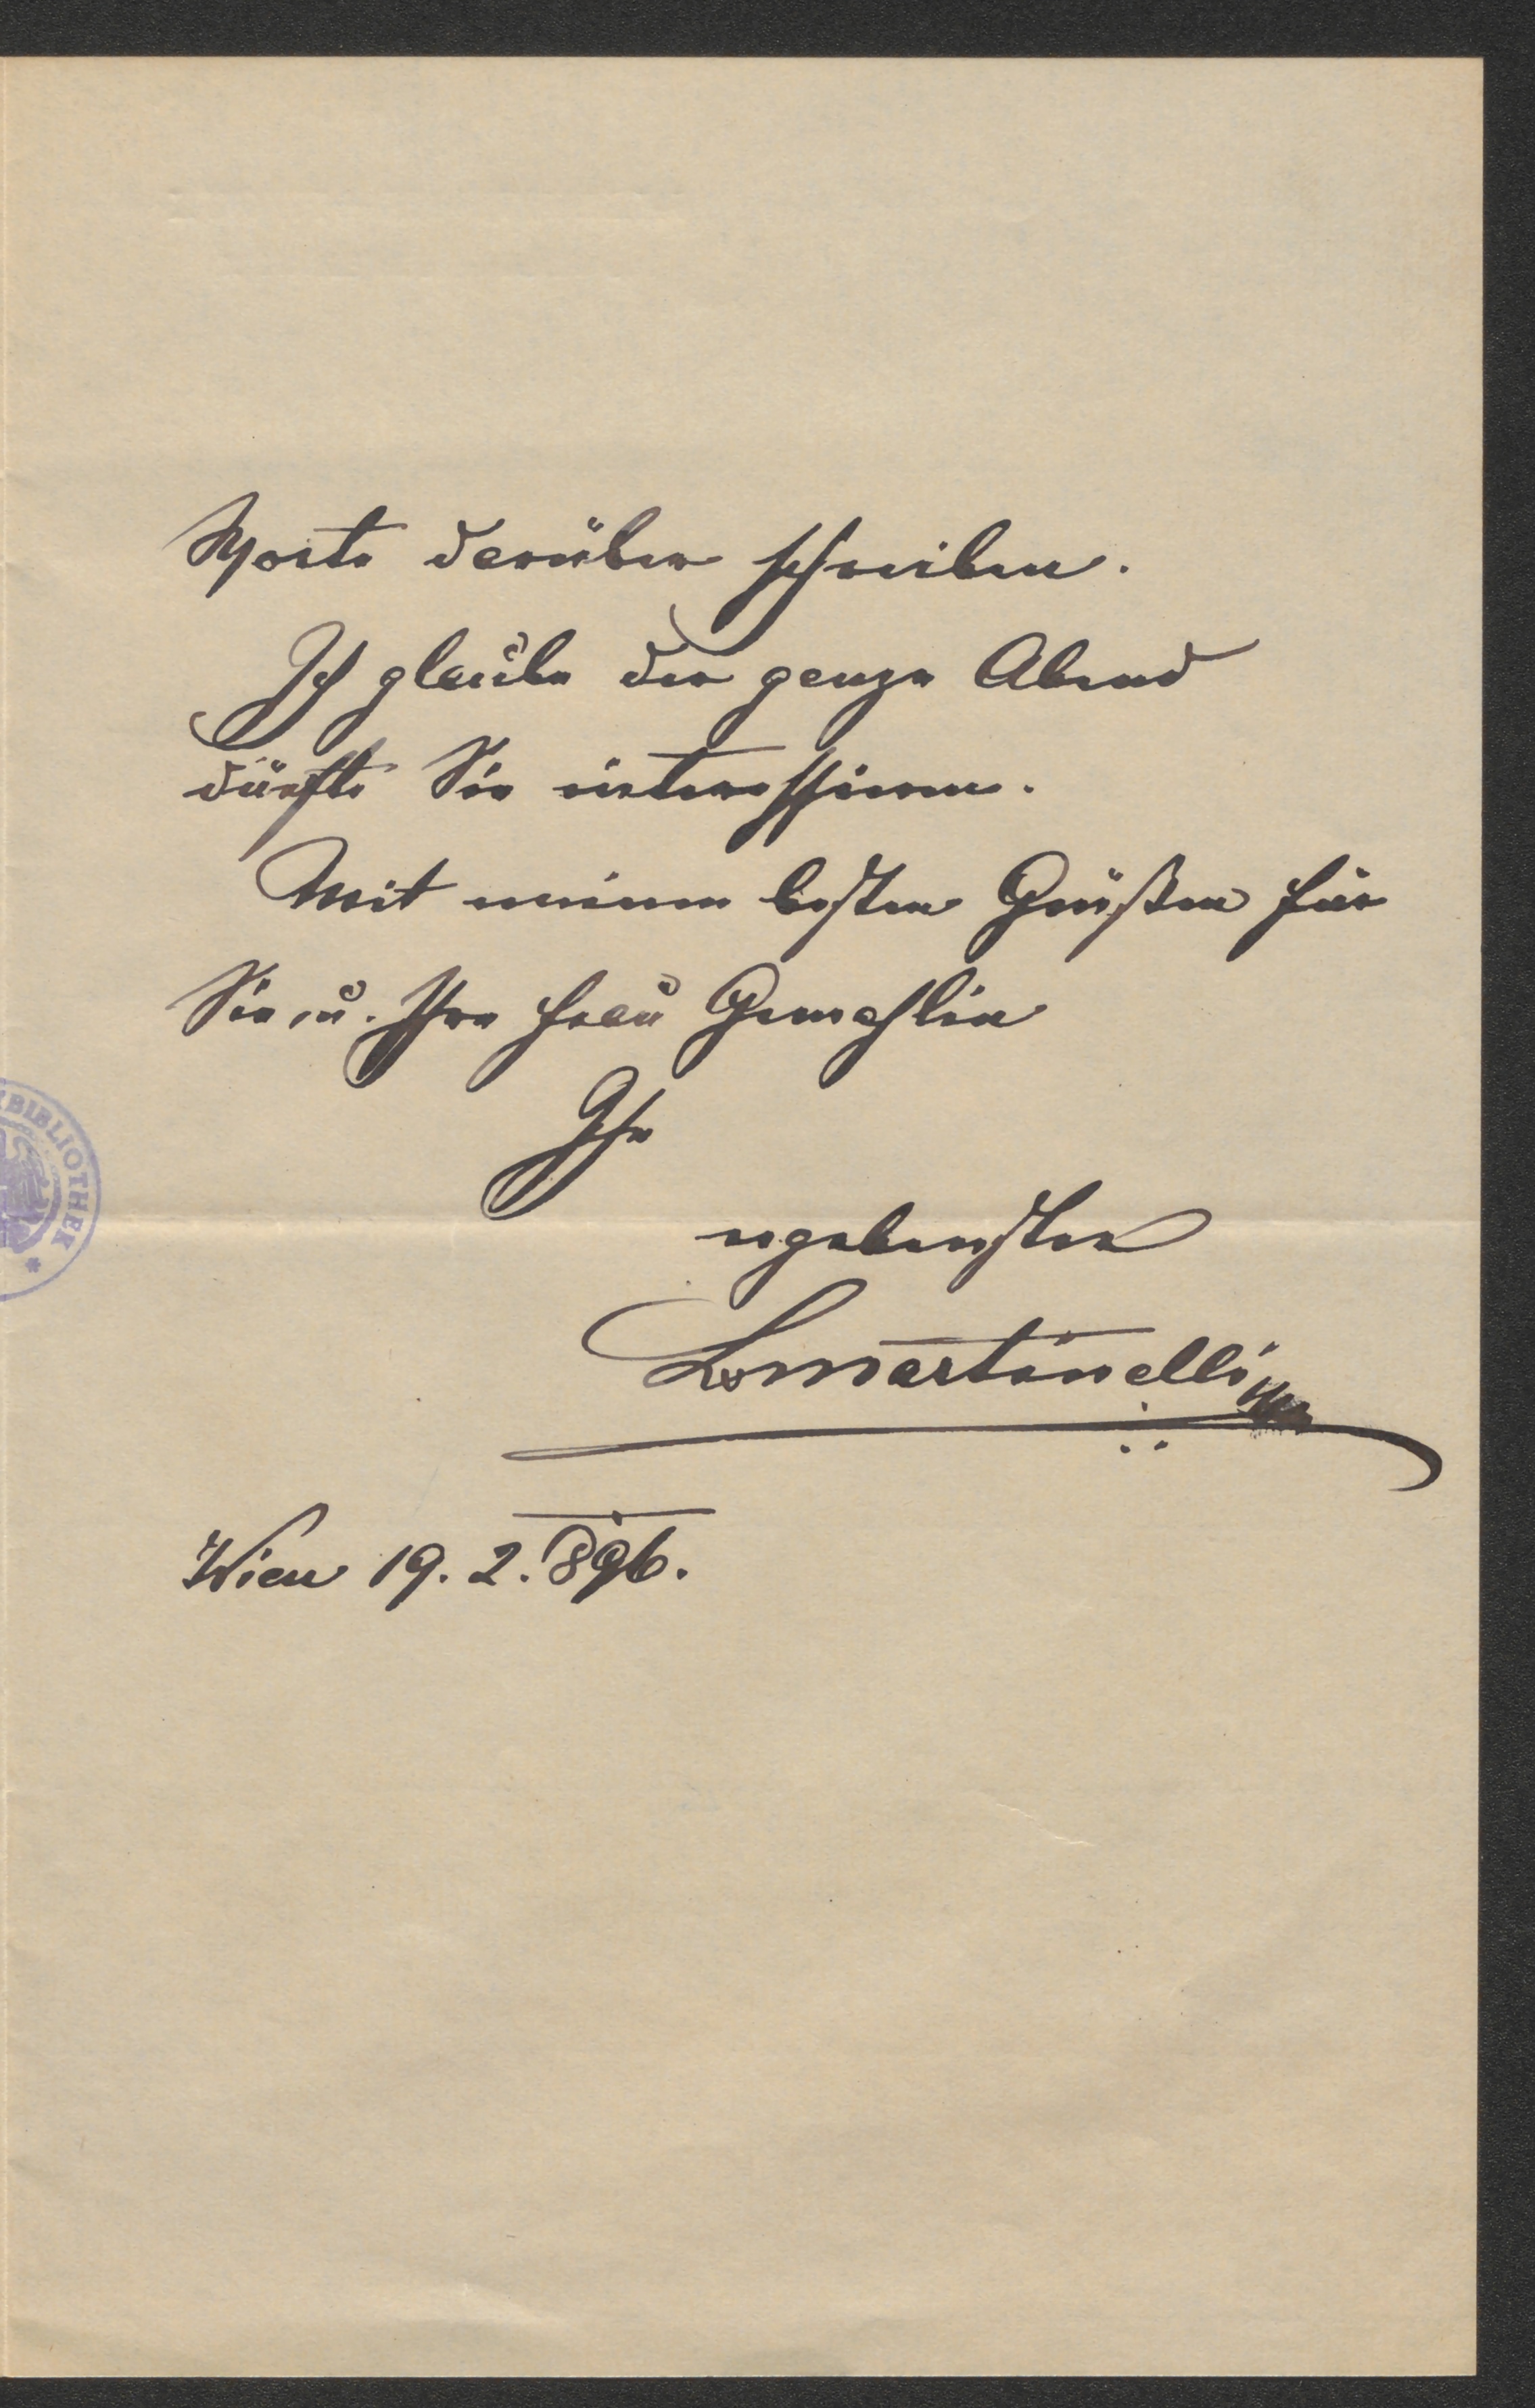 Worte darüber schreiben.
Ich glaube der ganze Abend
dürfte Sie interessieren.
Mit meinen besten Grüßen für
Sie, u. Ihre Frau Gemahlin
Ihr
ergebenster
LMartinelli
Wien 19. 2. 896.
BIBLIOTHEK *